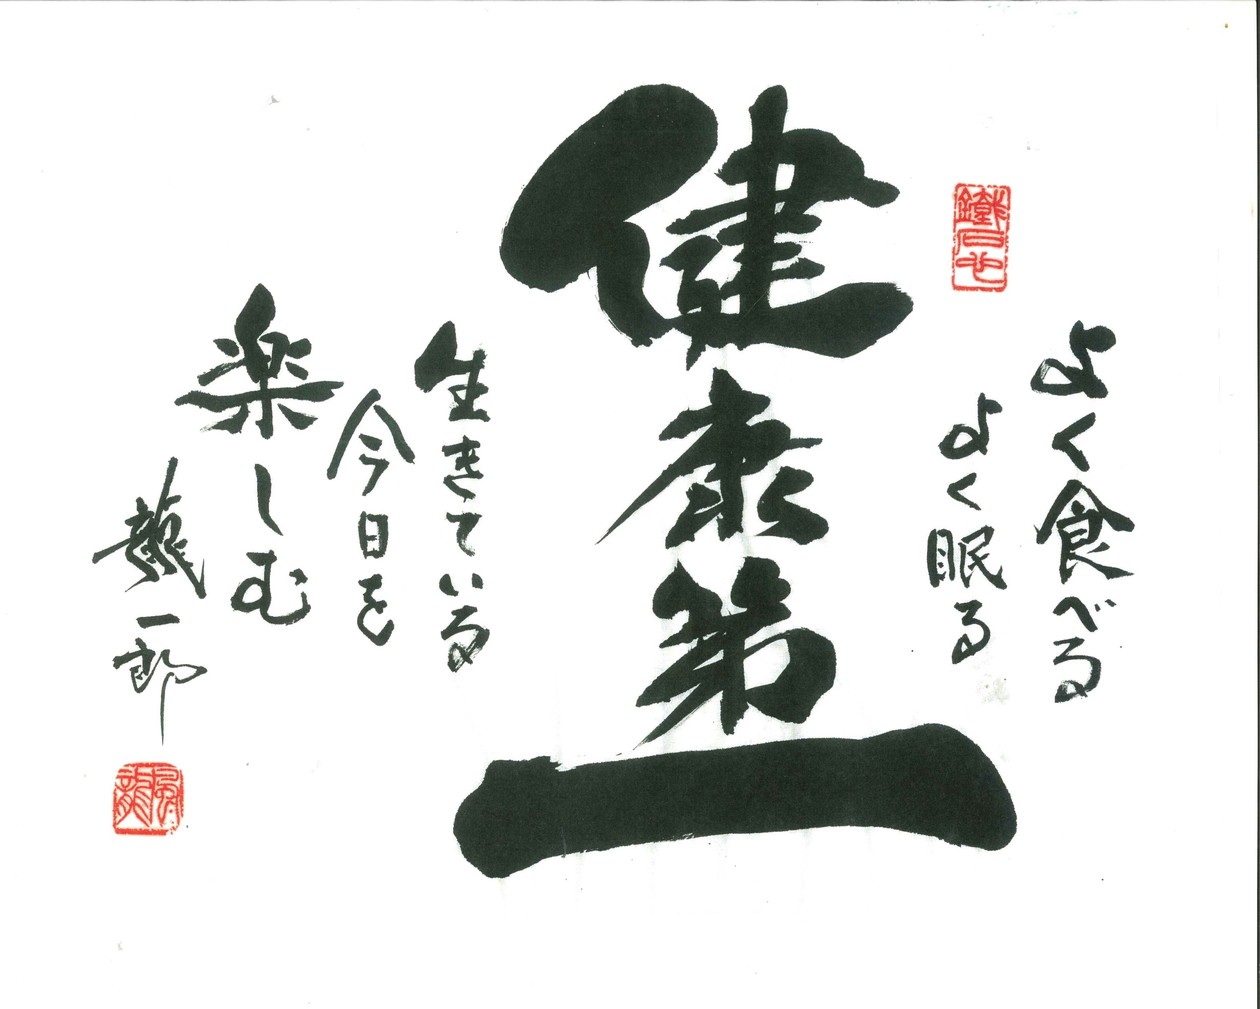 よく食べる
よく眠る
健康第一
生きている
今日を
楽しむ
龍一郎